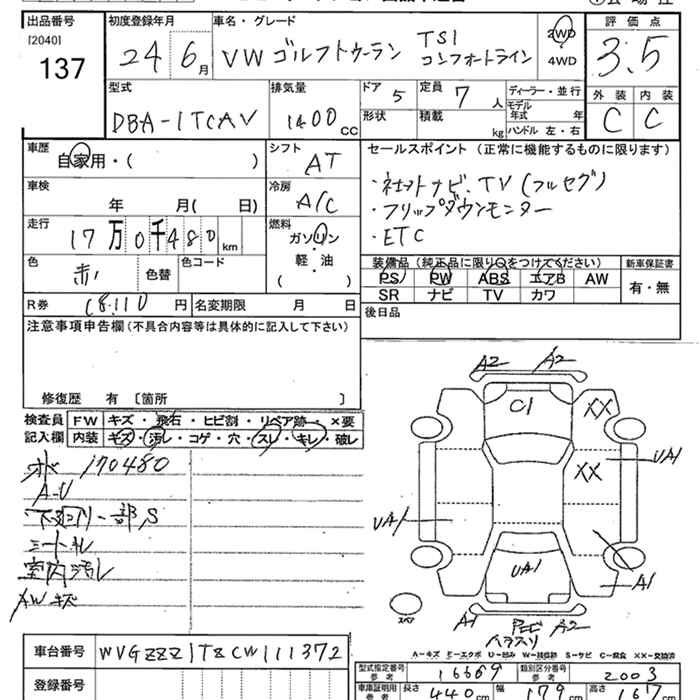 出品番号 初度登録年月 車名・グレード 評価点
[2040]
137
24 6月 VW ゴルフトゥーラン TSI コンフォートライン
2WD
4WD
3.5
型式 排気量 ドア 定員 ディーラー・並行 外装 内装
DBA-1TCAV 1400CC 5 7人 モデル年式 年 C C
形状 積載 kg ハンドル 左・右
車歴 シフト セールスポイント (正常に機能するものに限ります)
自家用・( ) AT
・社外ナビ、TV(フルセグ)
車検 年 月( 日) 冷房 A/C
・フリップダウンモニター
走行 燃料
17万0千480km ガソリン
・ETC
軽・油
( )
色 赤 色替 色コード
装備品 (純正品に限り○をつけてください) 新車保証書
PS PW ABS エアB AW 有・無
SR ナビ TV カワ
R券 18,110円 名変期限 月 日
後日品
注意事項申告欄 (不具合内容等は具体的に記入して下さい)
修復歴 有 〔箇所 〕
検査員 FW キズ・飛石・ヒビ割・リペア跡・×要
記入欄 内装 キズ・汚レ・コゲ・穴・スレ・キレ・破レ
170480
A-U
下廻り一部S
シート
室内汚レ
AWキズ
A2 A2
C1 XX
XX UA1
UA1
UA1 A1
スペア A1 A2
A-キズ E-エクボ U-凹み W-補修跡 S-サビ C-腐食 XX-交換済
車台番号 WVGZZZ1TZCW111372
登録番号
型式指定番号 参考 16669 類別区分番号 参考 2003
車庫証明用 参考 長さ 440cm 幅 179cm 高さ 167cm